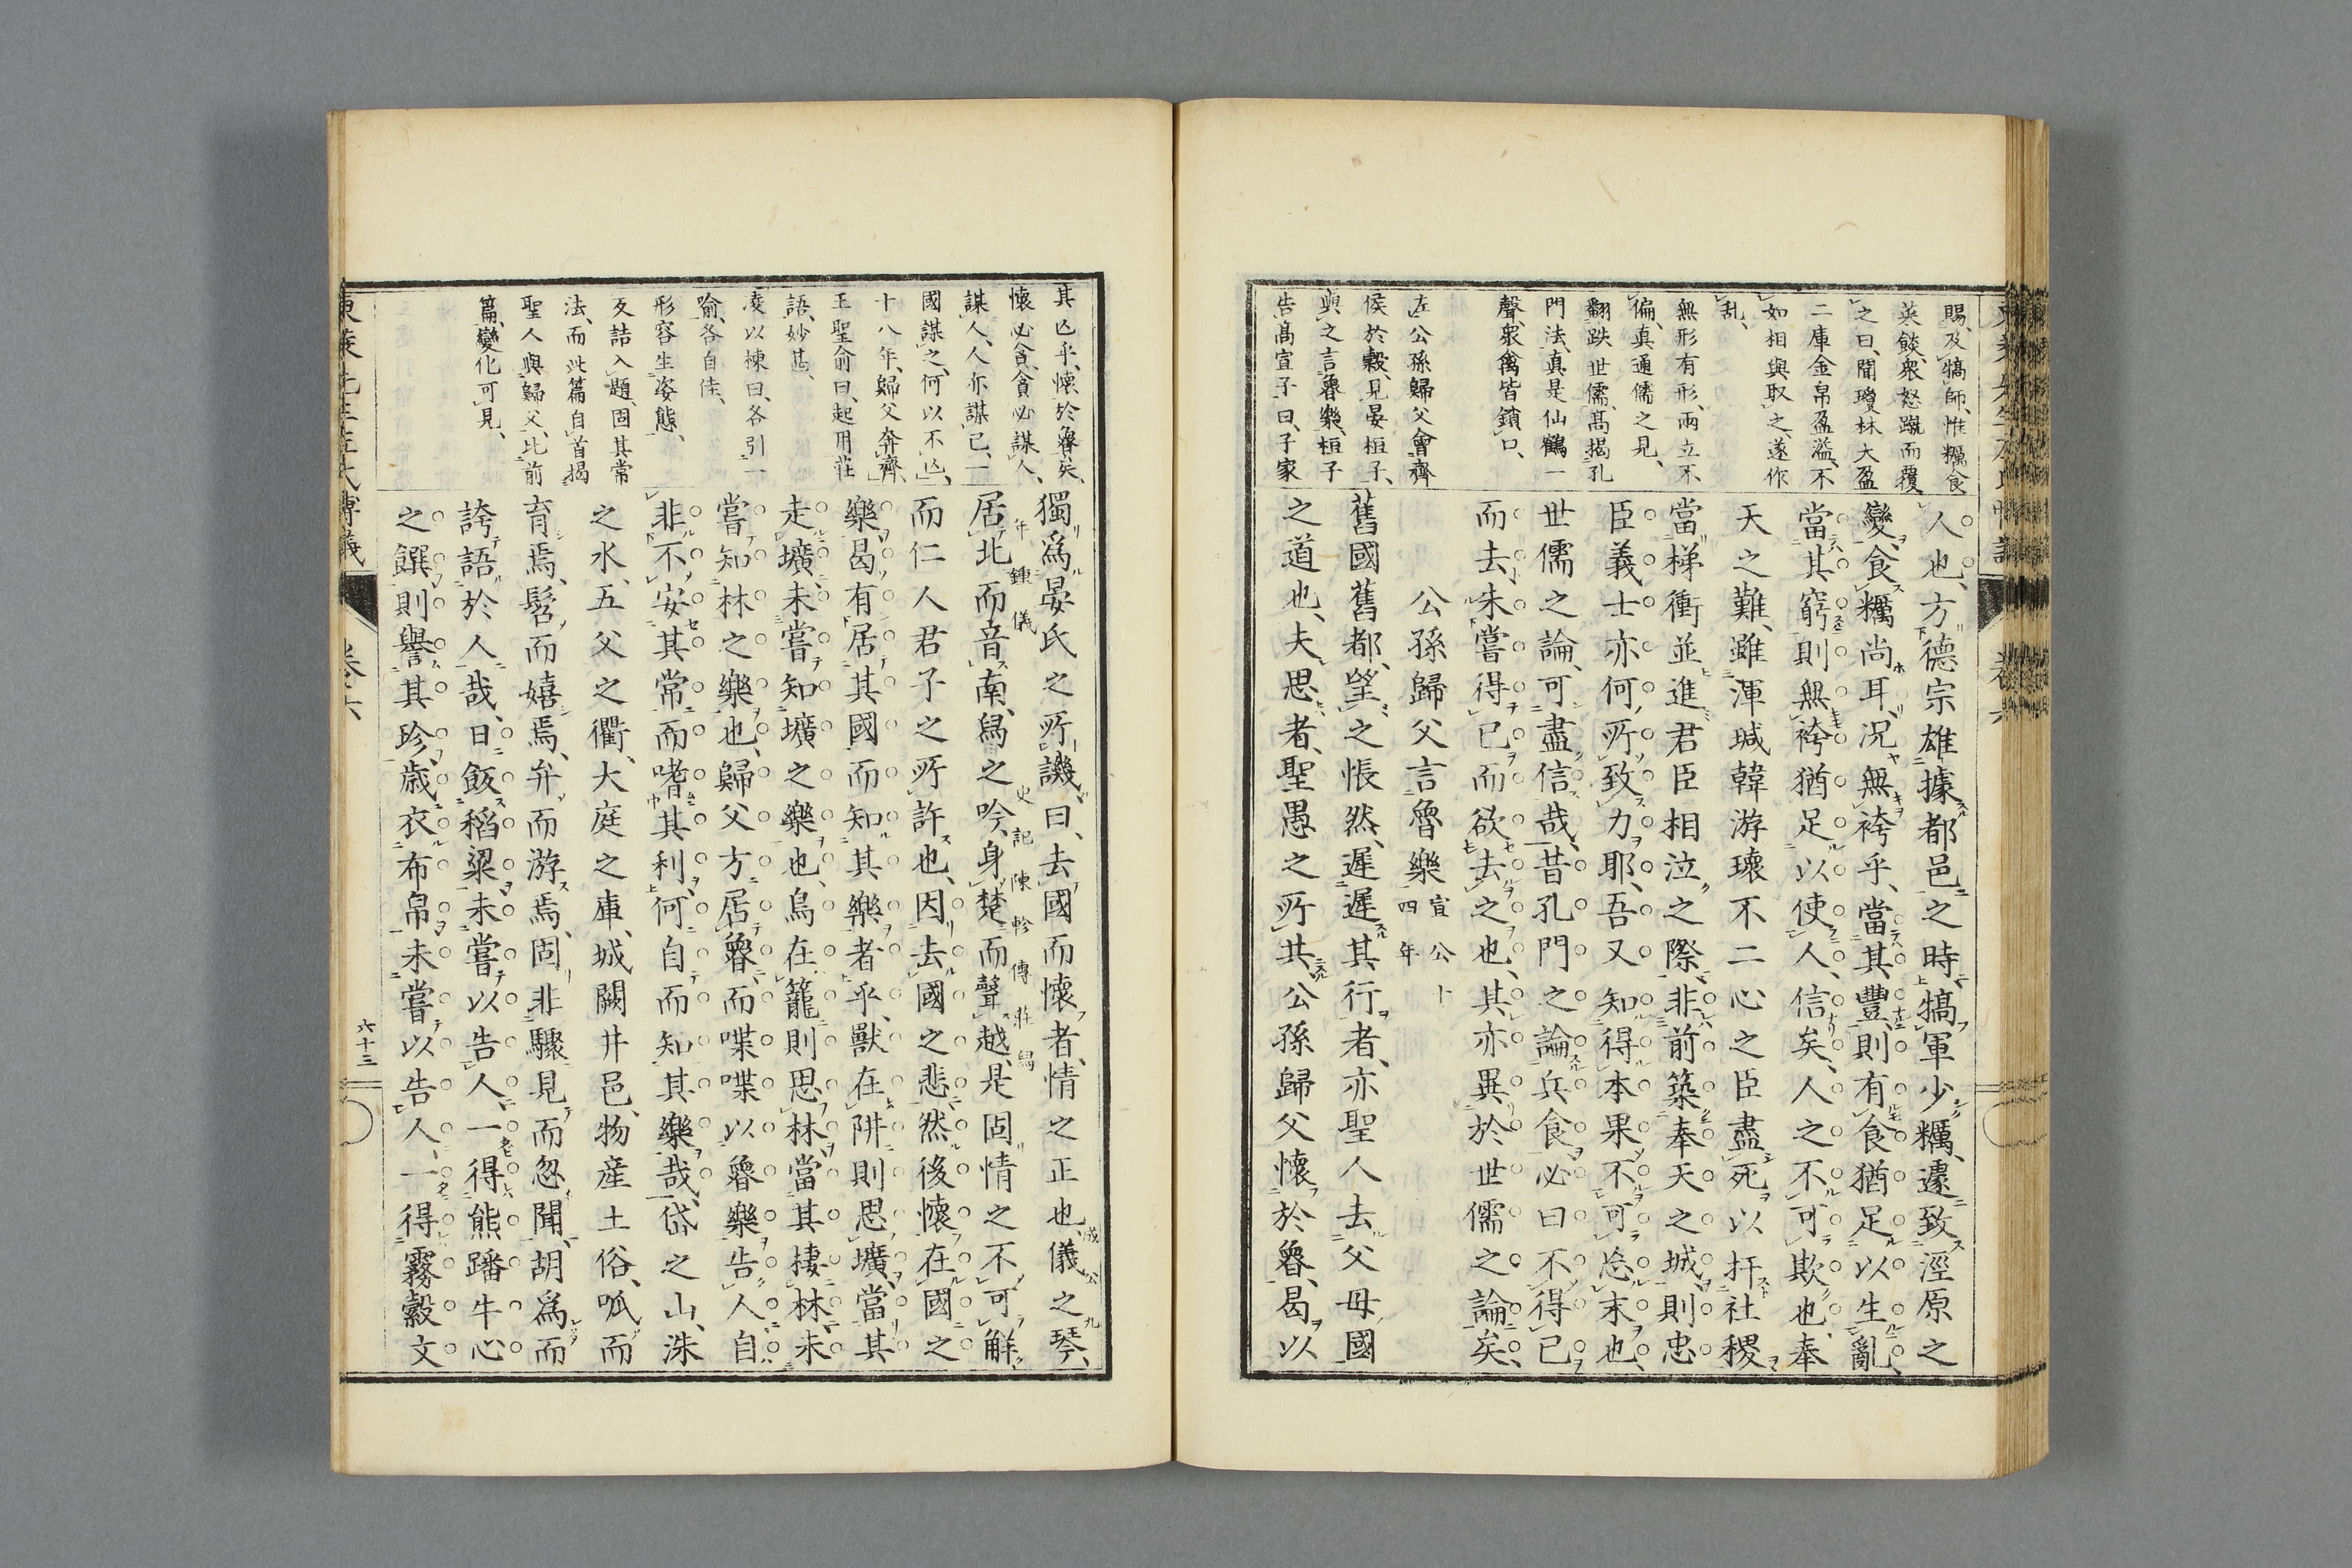 賜、及犒師、惟糲食
菜餤、衆怒蹴而覆
之曰、聞瓊林大盈
二庫金帛盈溢、不
如相與取之遂作
乱、
無形有形、兩立不
偏、真通儒之見、
翻跌世儒、高揭孔
門法、真是仙鶴一
聲、衆禽皆鎖口、
左公孫歸父會齊
侯於穀、見晏桓子、
與之言魯樂、桓子
告高宣子曰、子家
人也、方德宗雄據都邑之時犒軍少糲、遽致涇原之
變、食糲尚耳、况無袴乎、當其豐、則有食猶足以生亂、
當其窮則無袴猶足以使人、信矣、人之不可欺也、奉
天之難、雖渾瑊韓游瓌不二心之臣盡死以扞社稷
當梯衝並進君臣相泣之際、非前築奉天之城則忠
臣義士亦何所致力耶、吾又知得本果不可忘末也、
世儒之論、可盡信哉、昔孔門之論兵食、必曰不得已
而去、未嘗得已而欲去之也、其亦異於世儒之論矣、
公孫歸父言魯樂 宣公十四年
舊國舊都、望之悵然、遲遲其行者、亦聖人去父母國
之道也、夫思者、聖愚之所共公孫歸父懷於魯、曷以
其亾乎、懷於魯矣、
懷必貪、貪必謀人、
謀人、人亦謀已、一
國謀之、何以不亾、
十八年、歸父奔齊、
王聖俞曰、起用莊
語、妙甚、
凌以棟曰、各引一
喻、各自佳、
形容生姿態、
反詰入題、固其常
法、而此篇自首揭
聖人與歸父、比前
篇、變化可見、
獨爲晏氏之所譏曰、去國而懷者、情之正也、儀之琴、
成公九年鍾儀
居北而音南、舄之吟、身楚而聲越、是固情之不可解、
史記陳軫傳莊舄
而仁人君子之所許也、因去國之悲、然後懷在國之
樂、曷有居其國而知其樂者乎、獸在阱則思壙、當其
走壙、未嘗知壙之樂也、鳥在籠則思林、當其棲林、未
嘗知林之樂也、歸父方居魯而喋喋以魯樂告人、自
非不安其常而嗜其利、何自而知其樂哉、岱之山、洙
之水、五父之衢、大庭之庫、城闕井邑、物産土俗、呱而
育焉、髫而嬉焉、弁而游焉、固非驟見而忽聞、胡爲而
誇語於人哉、日飯稻粱未嘗以告人、一得熊蹯牛心
之饌則譽其珍、歳衣布帛未嘗以告人、一得霧縠文
卷六
六十三